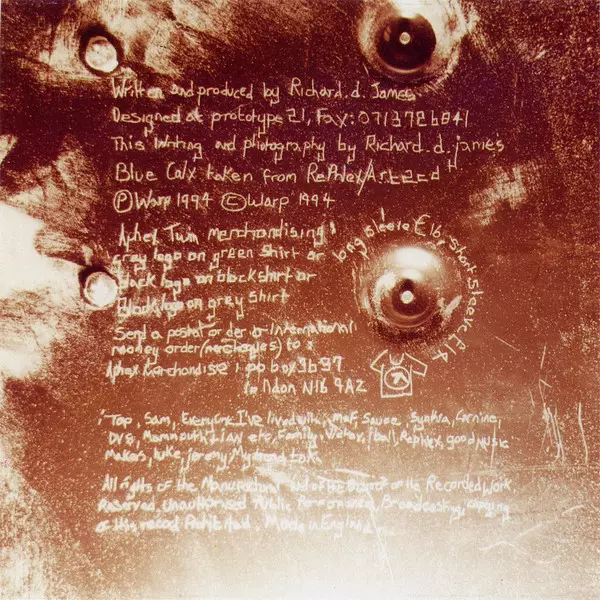 Written and produced by Richard. d. James
Designed at prototype 21, Fax: 0713726841
This Writing and photography by Richard. d. james
Blue Calx taken from Rephlex/Art 2cd
Ⓟ Warp 1994 © Warp 1994
Aphex Twin merchandising:
grey logo on green shirt or
black logo on black shirt or
black logo on grey shirt
long sleeve £16, short sleeve £14
Send a postal order or International
money order (no cheques) to:
Aphex Merchandise: po box 3b97
london N16 9AZ
Top, Sam, Everyone I've lived with, Mum
family,
Rephlex, good music
Makers, luke, jeremy
All rights of the Manufacturer and of the of the Recorded Work
Reserved. Unauthorised Public Performance, Broadcasting, copying
of this record Prohibited. Made in England